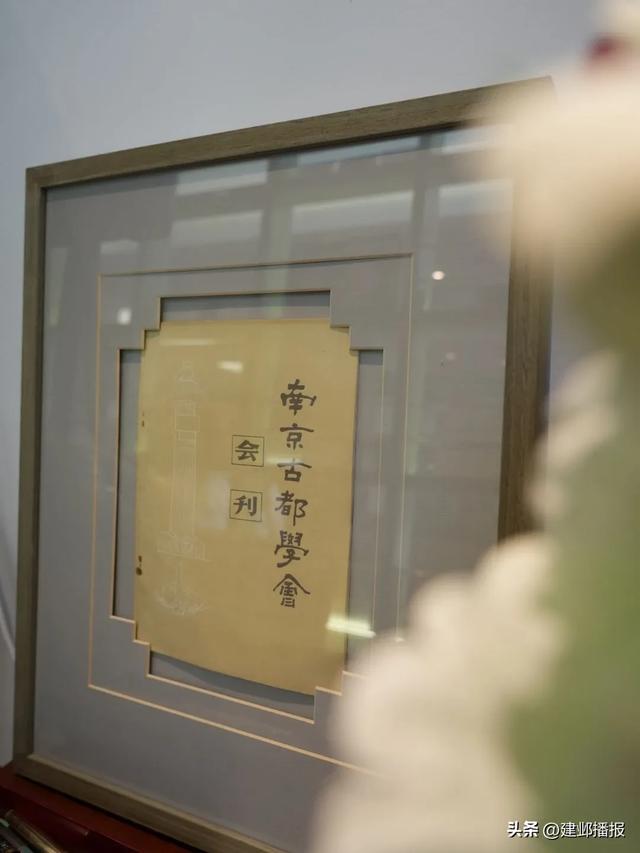 南京古都學會
会刊
头条 @建邺播报